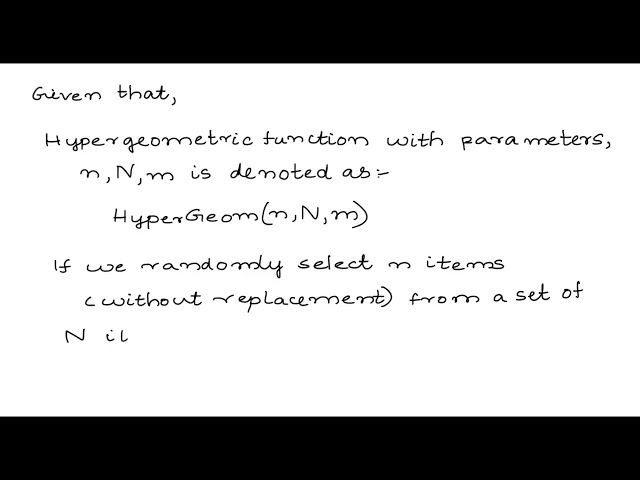 Given that,
Hypergeometric function with parameters,
n, N, m is denoted as:-
HyperGeom(n, N, m)
If we randomly select n items
(without replacement) from a set of
N